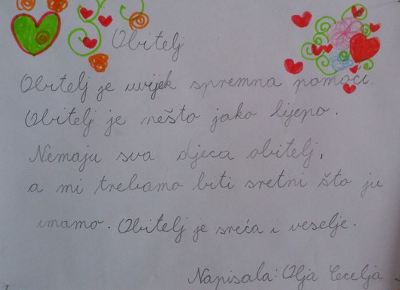 Obitelj
Obitelj je uvijek spremna pomoći.
Obitelj je nešto jako lijepo.
Nemaju sva djeca obitelj,
a mi trebamo biti sretni što ju
imamo. Obitelj je sreća i veselje.
Napisala: Olja Cecelja